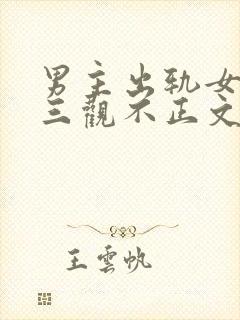 男主出轨女
三觀不正文
王雲帆